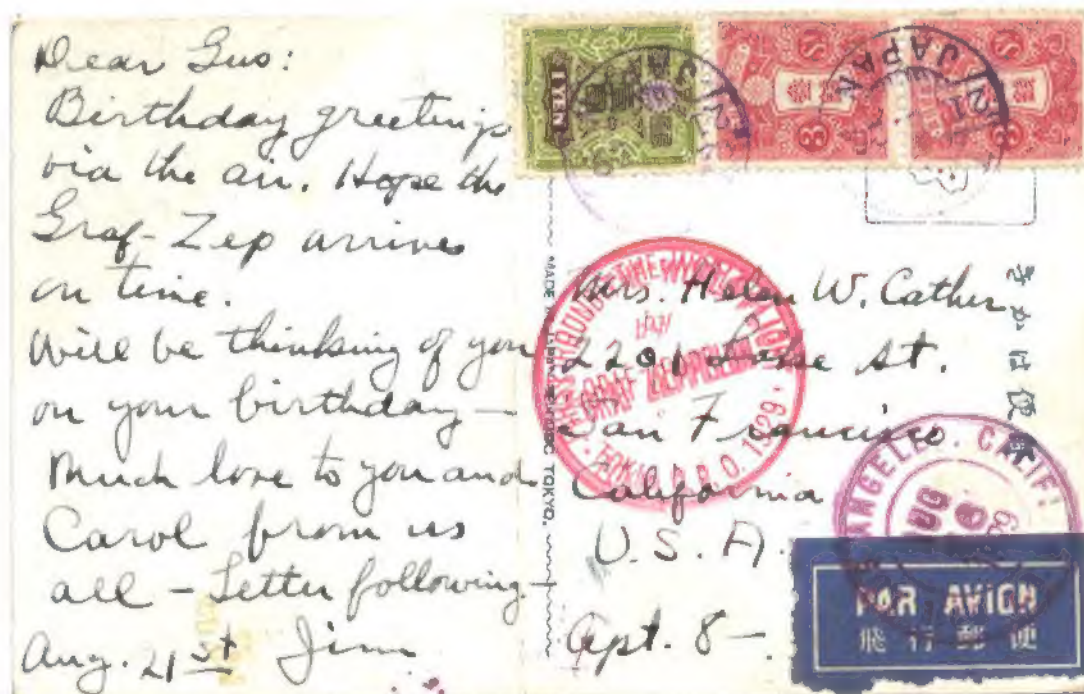 Dear Gus:
Birthday greetings
via the air. Hope the
Graf-Zep arrives
on time.
Will be thinking of you
on your birthday—
Much love to you and
Carol from us
all – Letter following—
Aug. 21st Jim
1 YEN
JAPAN
JAPAN
21
MADE
TOKYO.
きかは便郵
THE
BY
GRAF ZEPPELIN
1929
Mrs. Helen W. Cather
2201
St.
San Francisco.
California
U.S.A.
Apt. 8 –
ANGELES. CALIF.
AUG
PAR AVION
飛行郵便